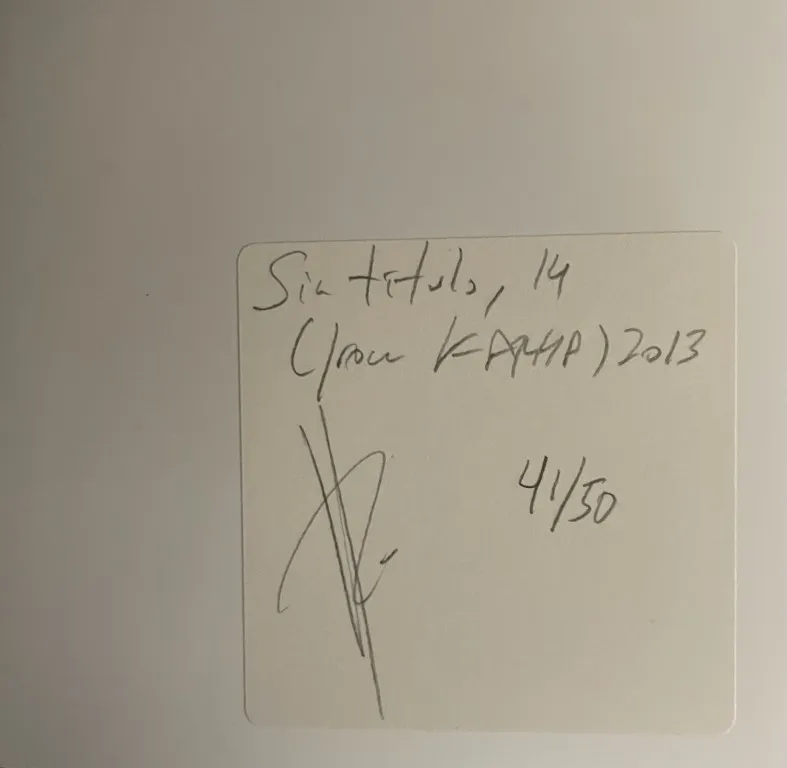 Sin título, 14
(from KAPHA) 2013
41/50